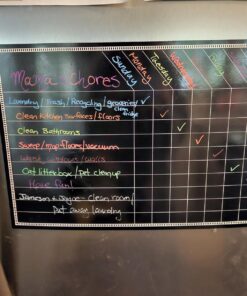 Mama's Chores
Sunday
Monday
Tuesday
Wednesday
Friday
Laundry/Trash/Recycling/groceries/clean
fridge
Clean Kitchen Surfaces/floors
Clean Bathrooms
Sweep/mop floors/vacuum
windows/walls
Cat litterbox/pet cleanup
Have fun!
Jameson & - clean room/
put away laundry